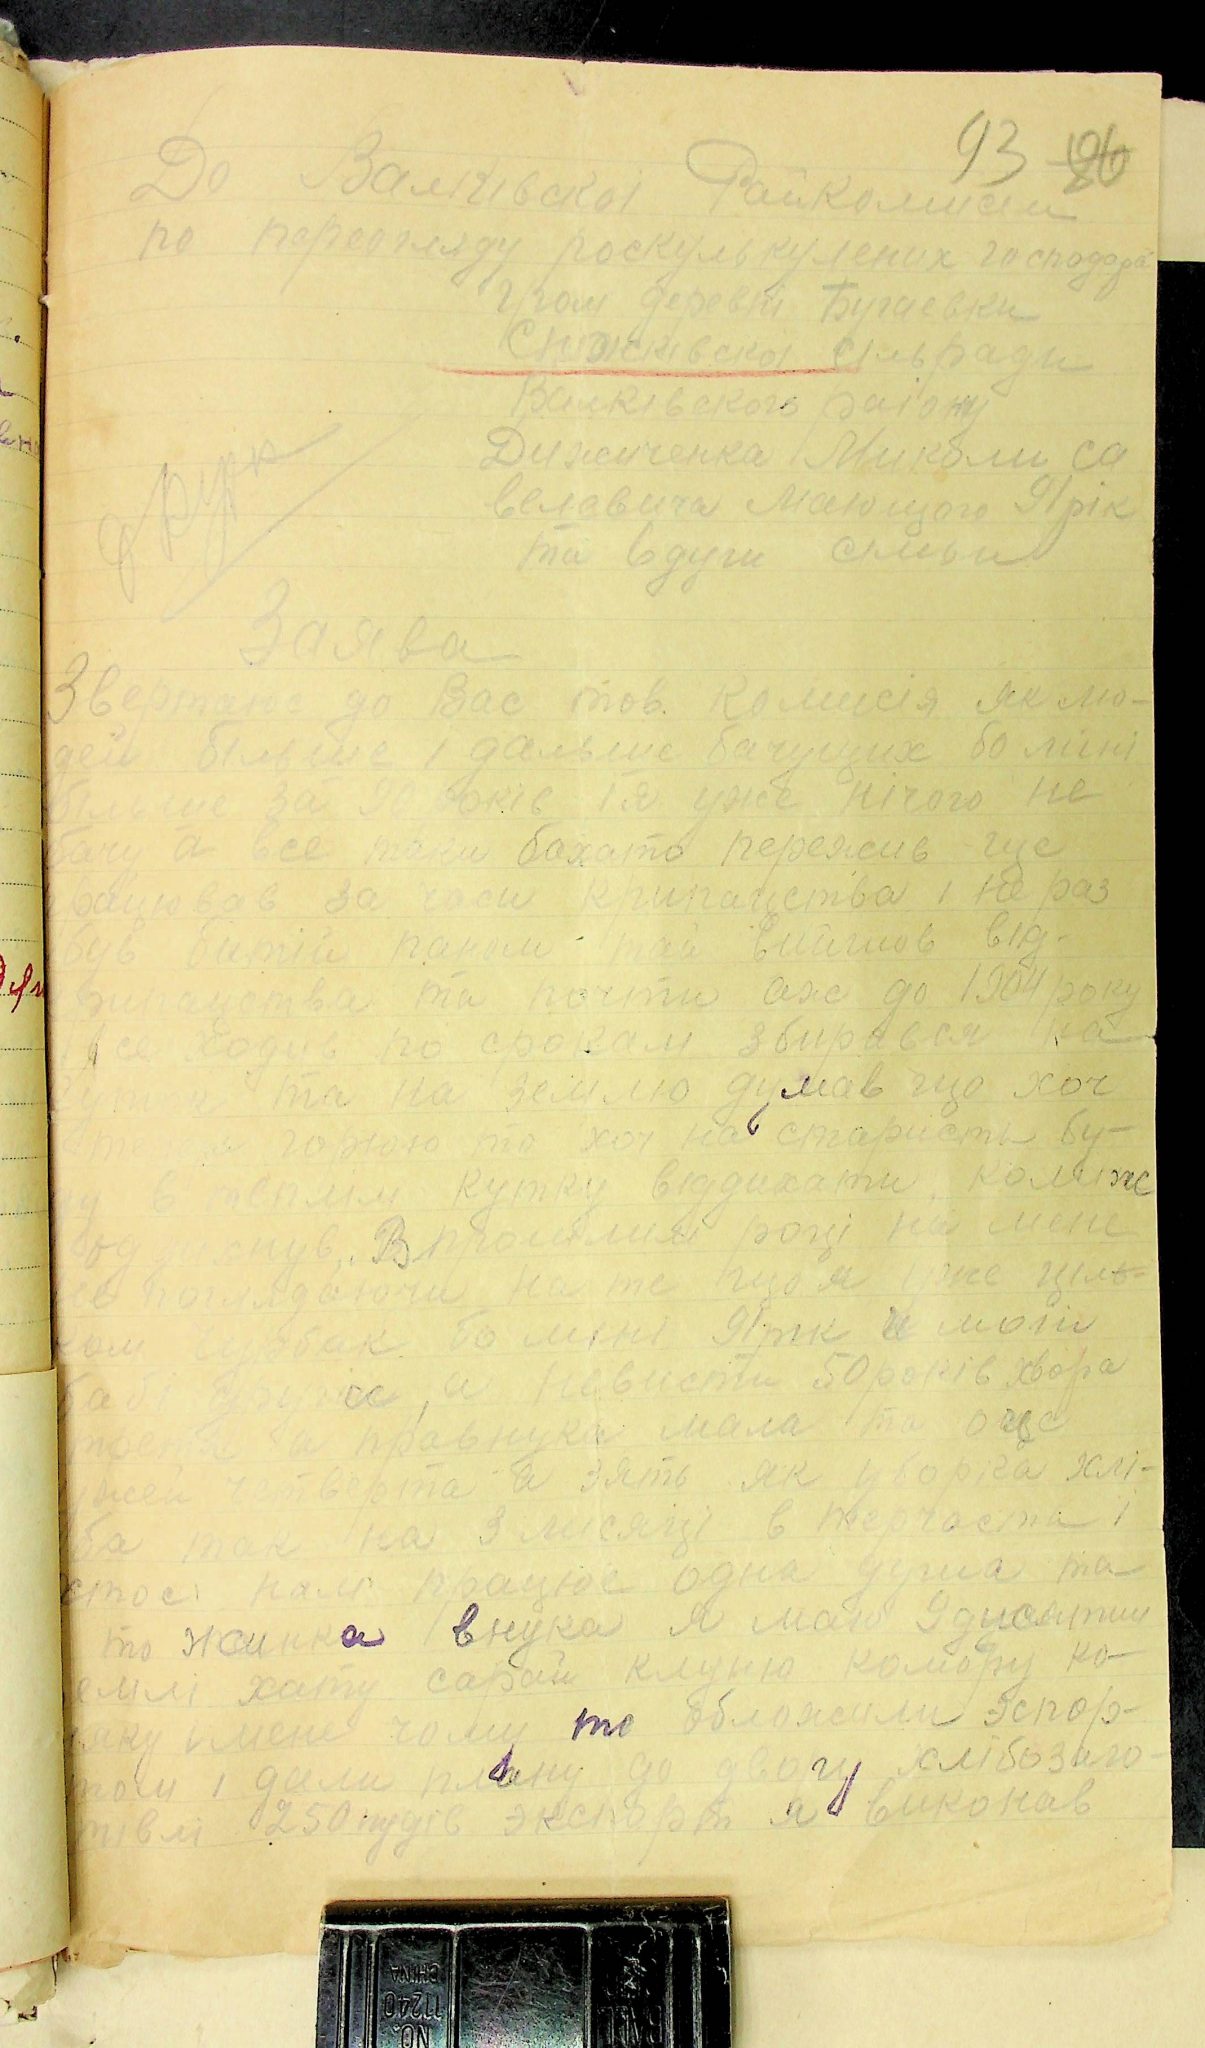 93 126
До Валківскоі Райкомисии
по переогляду роскулькулених господарс
гром деревні Бугаевки
Сніжківскоі сільради
Валківского раіону
Дижиченка Миколи са
велавича Мающого 91 рік
та 6 душ сімьи
друк
Заява
Звертаюс до Вас тов. Комисія як лю-
дей більше і дальше бачущих бо міні
більше за 90 років і я уже нічого не
бачу а все таки бахато пережив ще
працював за часи крипацства і не раз
був битій паном таа вийшов від-
крипацства та почти аж до 1904 року
все ходив по срокам збирався на
та на землю думав що хоч
горюю то хоч на старисть бу-
ду в теплім кутку віддихати, колиже
оддихнув. В прошлим році на мене
не поглядаючи на те що я уже ціль-
ком чурбак бо міні 91 рік и моій
бабі уже, а невисти 50 років хвора
а правнука мала та оце
ужей четверта а зять як уборка хлі-
ба так на 3 мисяці в терчасти і
хтос нам працюе одна душа та
то жинка внука я маю 9 дисятин
земли хату сарай клуню комору ко-
няку и мени чому то обложили эспор-
том і дали плану до двору хлібозаго-
тівлі 250 пудів экспорт я виконав